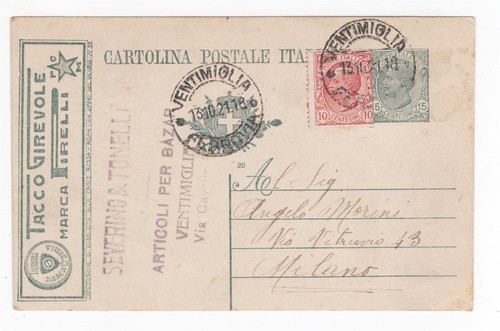 CARTOLINA POSTALE ITA
TACCO GIREVOLE
MARCA PIRELLI
VENTIMIGLIA
13.10.21.18
FERROVIA
VENTIMIGLIA
13.10.21.18
10 CENTESIMI 10
15 CENTESIMI 15
SEVERINO & TONELLI
ARTICOLI PER BAZAR
VENTIMIGLIA
Via
20
Al Sig.
Angelo Morini
Via Vitruvio 43
Milano